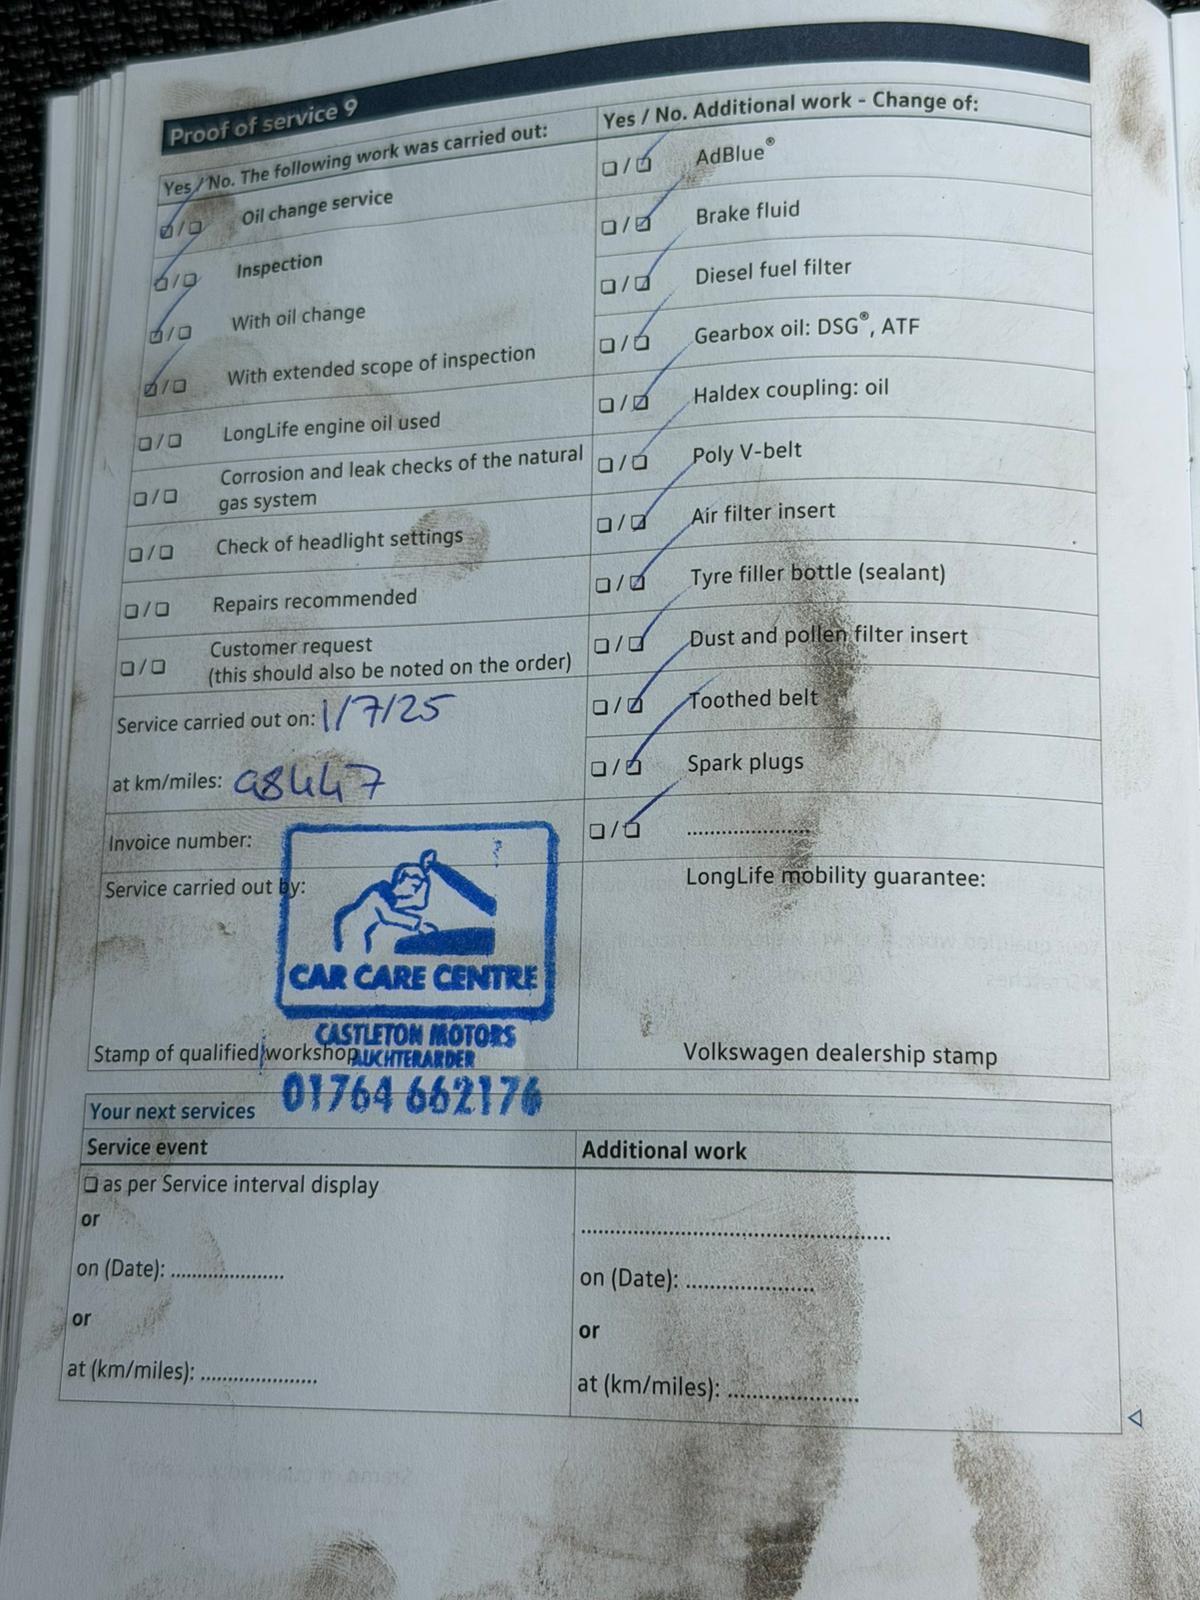 Proof of service 9
Yes / No. The following work was carried out:
Oil change service
Inspection
With oil change
With extended scope of inspection
LongLife engine oil used
Corrosion and leak checks of the natural
gas system
Check of headlight settings
Repairs recommended
Customer request
(this should also be noted on the order)
Service carried out on: 1/7/25
at km/miles: 98447
Invoice number:
Service carried out by:
CAR CARE CENTRE
CASTLETON MOTORS
AUCHTERARDER
01764 662176
Stamp of qualified workshop
Yes / No. Additional work - Change of:
AdBlue®
Brake fluid
Diesel fuel filter
Gearbox oil: DSG®, ATF
Haldex coupling: oil
Poly V-belt
Air filter insert
Tyre filler bottle (sealant)
Dust and pollen filter insert
Toothed belt
Spark plugs
....................
LongLife mobility guarantee:
Volkswagen dealership stamp
Your next services
Service event
as per Service interval display
or
on (Date): ....................
or
at (km/miles): ....................
Additional work
..................................................
on (Date): ......................
or
at (km/miles): ......................